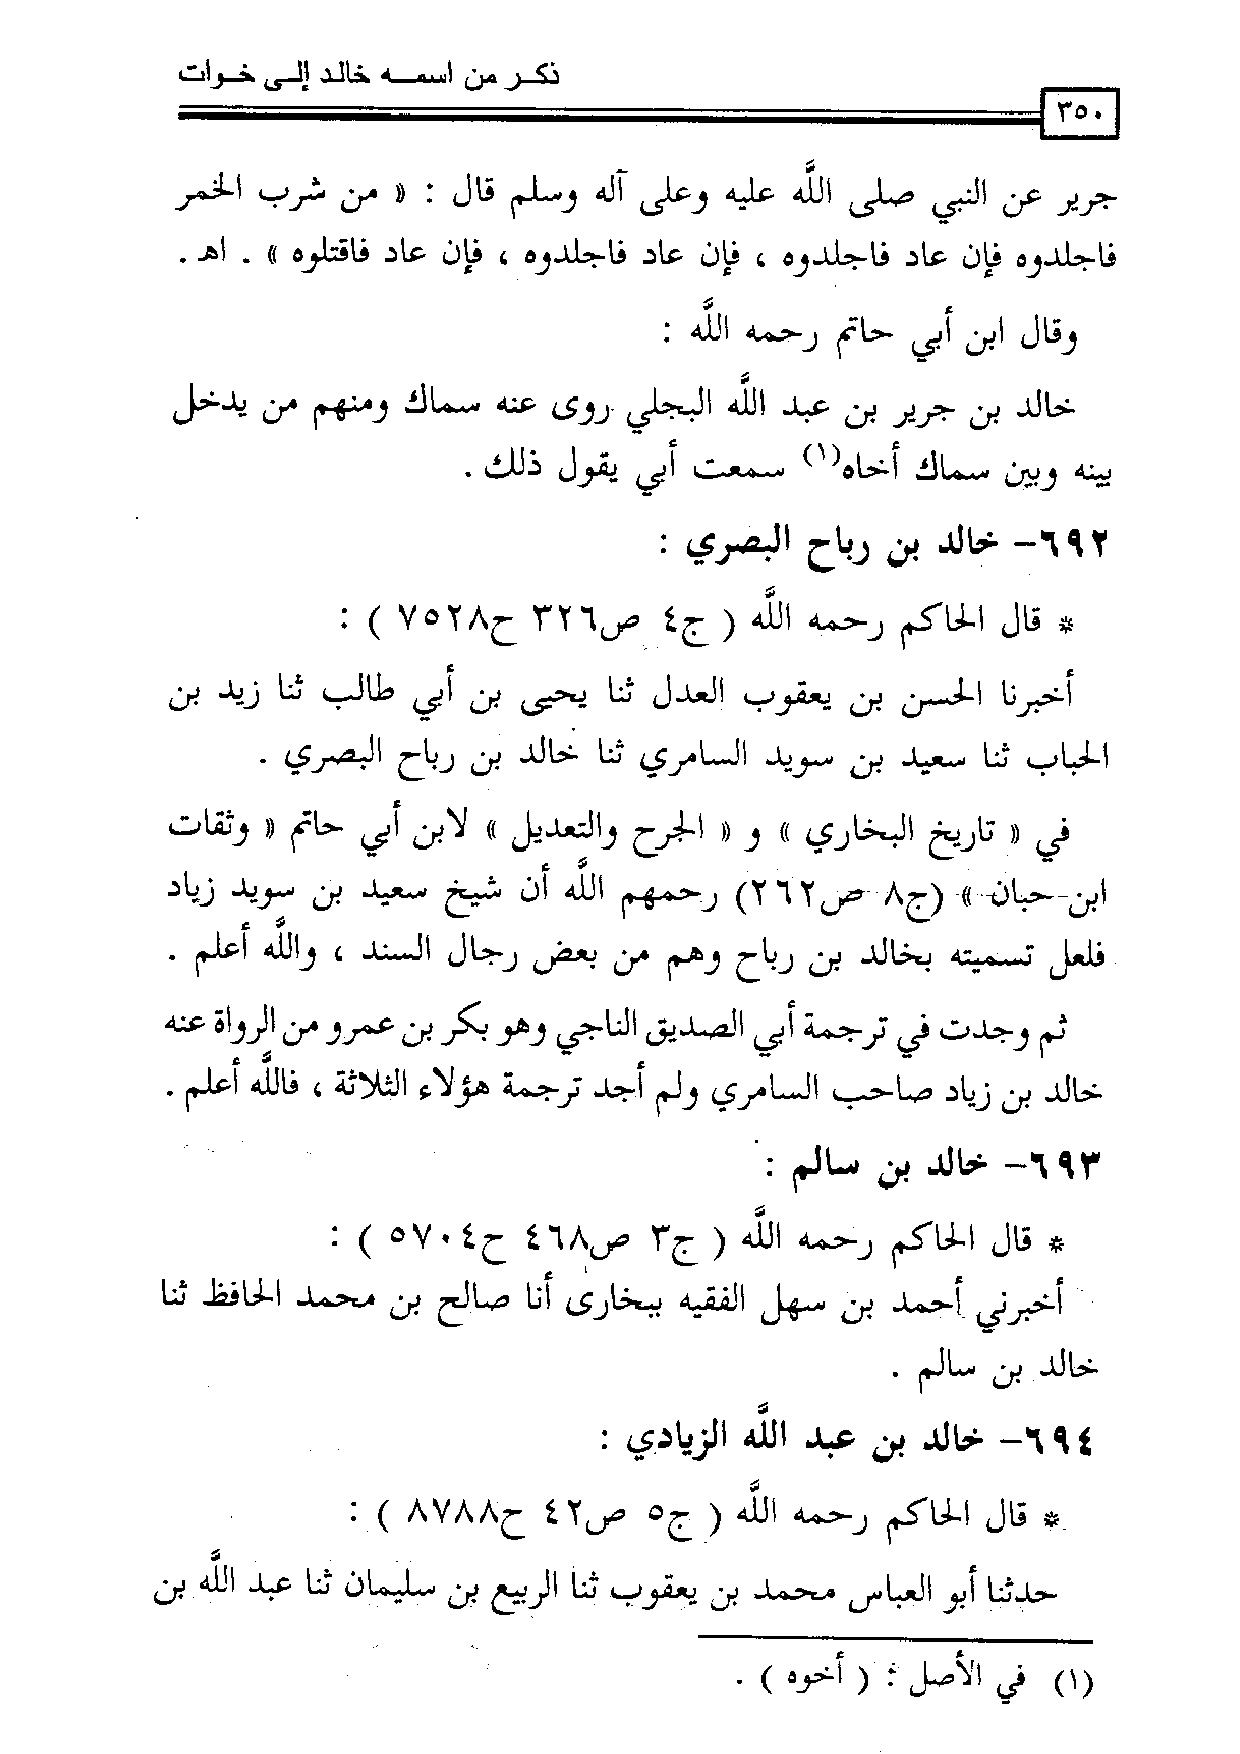 ذكر من اسمه خالد إلى خوات
٣٥٠
جرير عن النبي صلى اللَّه عليه وعلى آله وسلم قال : « من شرب الخمر
فاجلدوه فإن عاد فاجلدوه ، فإن عاد فاجلدوه ، فإن عاد فاقتلوه » . اهـ .
وقال ابن أبي حاتم رحمه اللَّه :
خالد بن جرير بن عبد اللَّه البجلي روى عنه سماك ومنهم من يدخل
بينه وبين سماك أخاه(١) سمعت أبي يقول ذلك .
٦٩٢- خالد بن رباح البصري :
* قال الحاكم رحمه اللَّه ( ج٤ ص٣٢٦ ح٧٥٢٨ ) :
أخبرنا الحسن بن يعقوب العدل ثنا يحيى بن أبي طالب ثنا زيد بن
الحباب ثنا سعيد بن سويد السامري ثنا خالد بن رباح البصري .
في « تاريخ البخاري » و « الجرح والتعديل » لابن أبي حاتم « وثقات
ابن حبان » (ج٨ ص٢٦٢) رحمهم اللَّه أن شيخ سعيد بن سويد زياد
فلعل تسميته بخالد بن رباح وهم من بعض رجال السند ، واللَّه أعلم .
ثم وجدت في ترجمة أبي الصديق الناجي وهو بكر بن عمرو من الرواة عنه
خالد بن زياد صاحب السامري ولم أجد ترجمة هؤلاء الثلاثة ، فاللَّه أعلم .
٦٩٣- خالد بن سالم :
* قال الحاكم رحمه اللَّه ( ج٣ ص٤٦٨ ح٥٧٠٤ ) :
أخبرني أحمد بن سهل الفقيه ببخارى أنا صالح بن محمد الحافظ ثنا
خالد بن سالم .
٦٩٤- خالد بن عبد اللَّه الزيادي :
* قال الحاكم رحمه اللَّه ( ج٥ ص٤٢ ح٨٧٨٨ ) :
حدثنا أبو العباس محمد بن يعقوب ثنا الربيع بن سليمان ثنا عبد اللَّه بن
(١) في الأصل : ( أخوه ) .